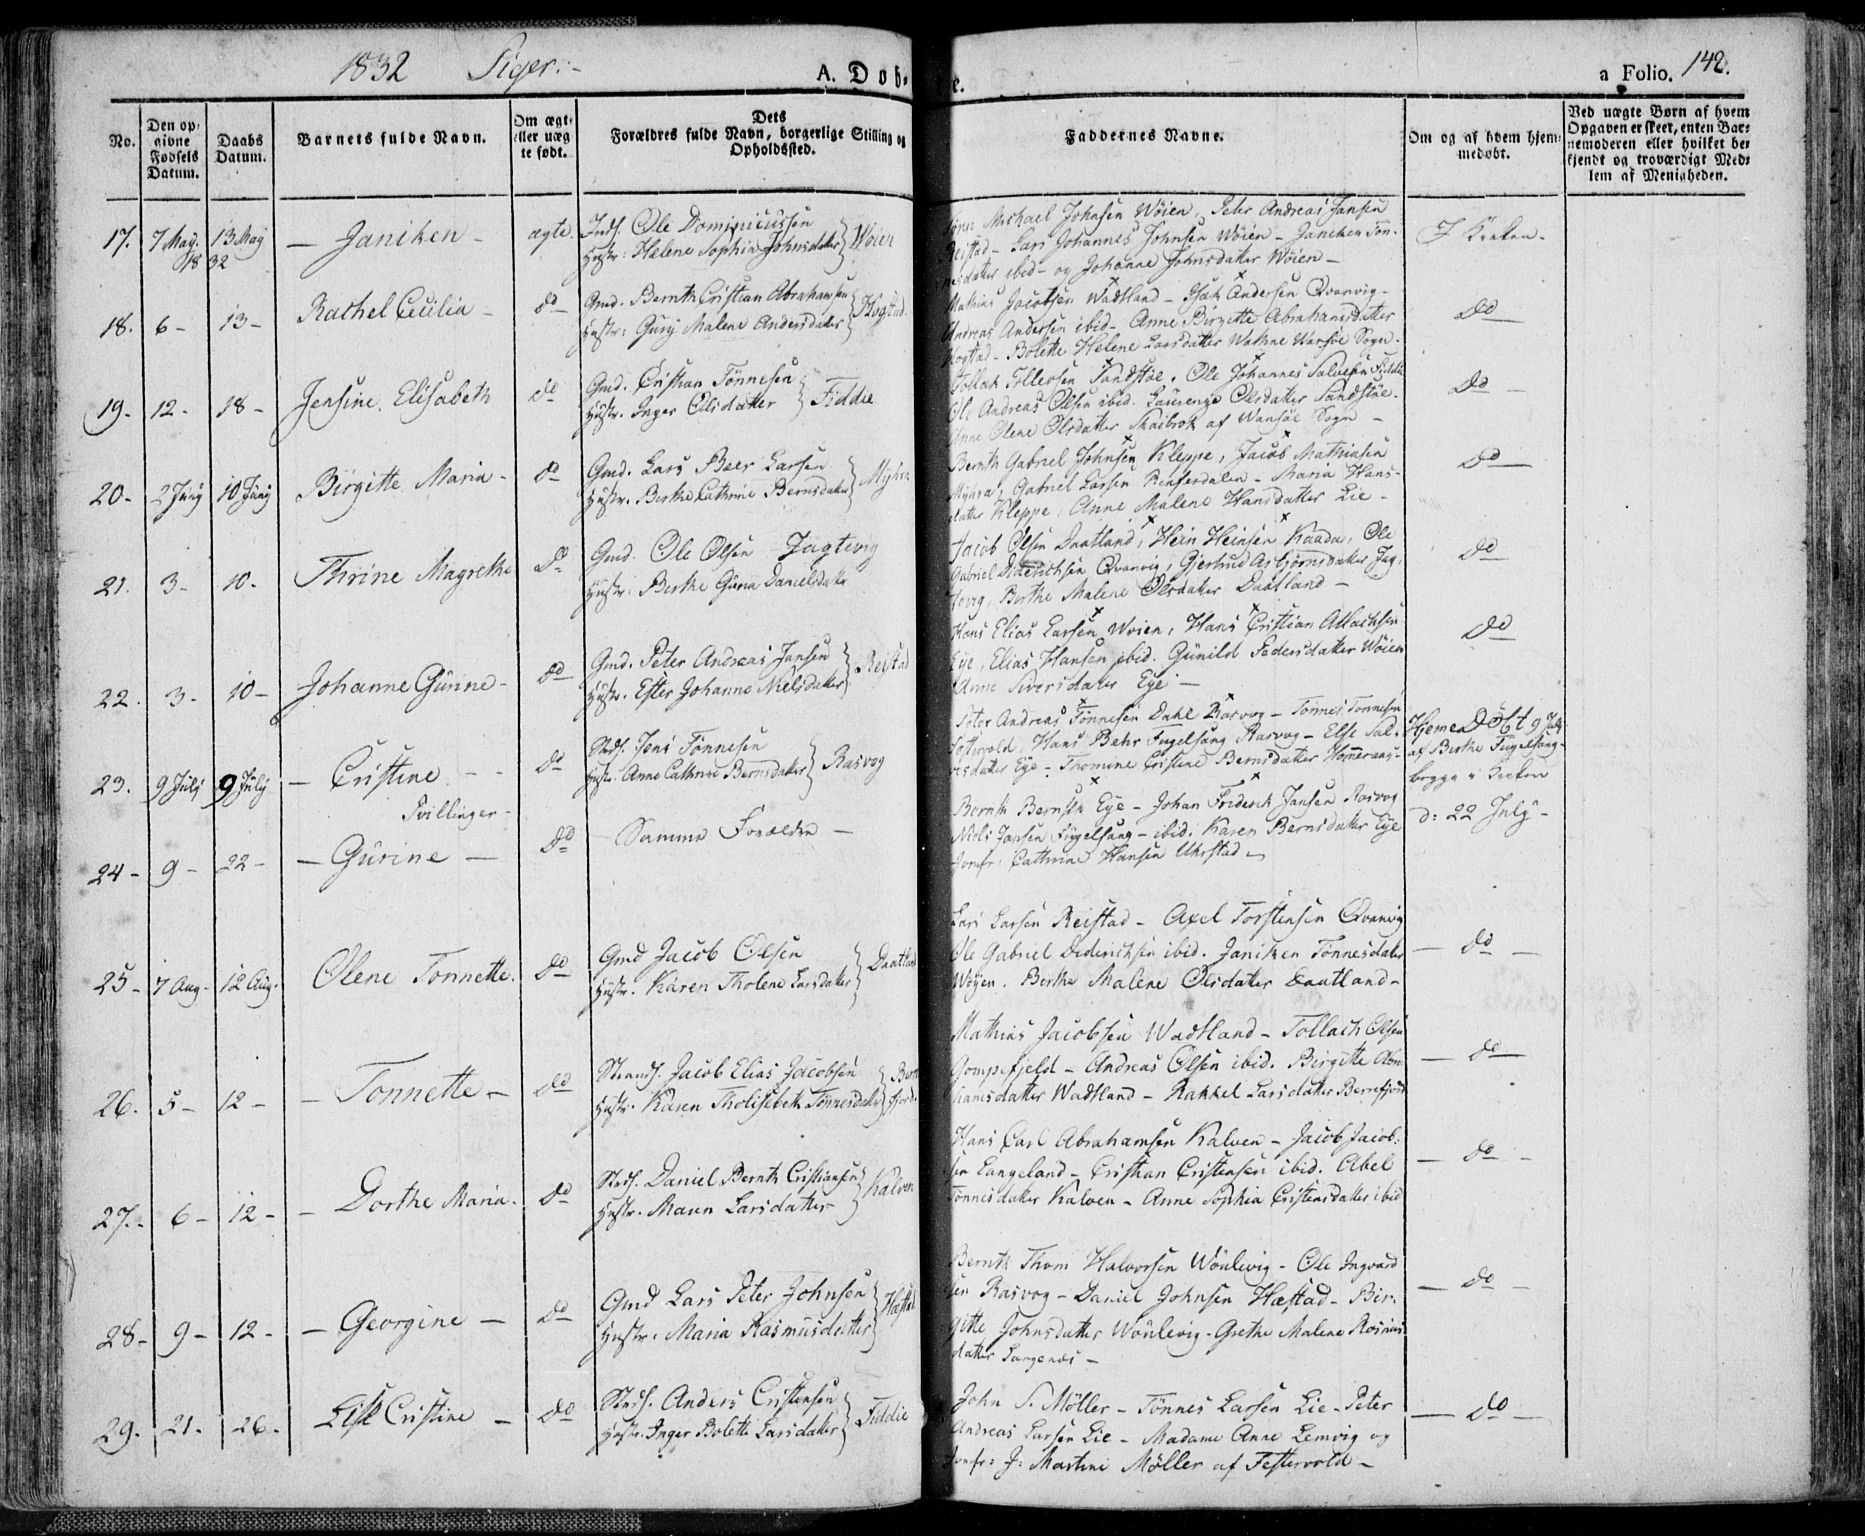 1832 Piger.-
A. Døb-
e.
a Folio. 142.
No.
Den op-
givne
Fødsels
Datum.
Daabs
Datum.
Barnets fulde Navn.
Om ægte
eller uæg-
te født.
Dets
Forældres fulde Navn, borgerlige Stilling og
Opholdssted.
Faddernes Navne.
Om og af hvem hjem-
medøbt.
Ved uægte Børn af hvem
Opgaven er skeet, enten Bar-
nemoderen eller hvilket be-
kjendt og troværdigt Med-
lem af Menigheden.
17. 7 May 1832 13 May - Janiken - ægte
Inds. Ole Dominicussen
Hustr: Helene Sophia Johnsdatter } Wøien
Michael Johnsen Wøien, Peter Andreas Jansen
Reistad - Lars Johannes Johnsen Wøien - Janiken Tøn-
nesdatter ibid - og Johanne Johnsdatter Wøien -
I Kirken -
18. 6 - 13 - Rachel Cecilia - do
Gmd. Bernth Cristian Abrahamsen
Hustr: Gurij Malene Andersdatter } Kogstad
Mathias Jacobsen Wadtland - Isak Andersen Qvanvig -
Andreas Andersen ibid - Anne Birgitte Abrahamsdatter
Kogstad - Bolette Helene Larsdatter Wathne Wansøe Sogn -
do
19. 12 - 18 - Jensine Elisabeth do
Gmd. Cristian Tønnesen
Hustr. Inger Olsdatter } Fiddie
Tollak Tollevsen Sandstøe. Ole Johannes Salvesen Fiddie
Ole Andreas Olsen ibid. Laurenze Olsdatter Sandstøe -
Anne Olene Olsdatter Skaibrok af Wansøe Sogn -
do -
20 - 2 Junij 10 Junij Birgitte Maria - do
Gmd. Lars Beer Larsen
Hustr. Berthe Cathrine Berntsdatter } Myhre
Bernth Gabriel Johnsen Kleppe, Jacob Mathiasen
Myhra, Gabriel Larsen - Maria Hans-
datter Kleppe, Anne Malene Hansdatter Lie -
do
21. 3 - 10 - Thrine Magrethe do
Gmd. Ole Olsen Jagtevig
Hustr: Berthe Guna Danielsdatter
Jacob Olsen Daatland, Hein Heinsen Kaada, Ole
Gabriel Diderichsen Qvanvig, Gjertrud Asbjørnsdatter Jag-
tevig, Berthe Malene Olsdatter Daatland -
do
22. 3 - 10 - Johanne Gurine - do
Gmd. Peter Andreas Jansen
Hustr. Ester Johanne Nielsdatter } Reistad
Hans Elias Larsen Woien, Hans Cristian Atlachsen
Eye, Elias Hansen ibid. Gunild Pedersdatter Wøien
Anne Siversdatter Eye -
do
23. 9 Julij 9 Julij - Cristine - - do
Tvillinger -
Strds. Jens Tønnesen
Hustr. Anne Cathrine Berntsdatter } Rasvog
Peter Andreas Tønnesen Dahl Rasvog - Tønnes Tønnesen
Hans Behr Fugelsang Rasvog - Else Sal-
vesdatter Eye - Thomine Cristine Berntsdatter
Hjemedøbt 9 July
af Berthe Fugelsang -
begge i Kirken
d: 22 July -
24 - 9 - 22 - - Gurine - do
- Samme Forældre -
Bernth Berntsen Eye - Johan Friderik Jansen Rasvog
Niels Jansen Fugelsang - ibid, Karen Berntsdatter Eye
Jomfr: Cathrine Hansen -
25 - 7 Aug - 12 Aug - Olene Tonnette do
Gmd Jacob Olsen
Hustr. Karen Tholene Larsdatter } Daatland
Lars Larsen Reistad - Axel Torstensen Qvanvig
Ole Gabriel Diderichsen ibid. Janiken Tønnesdatter
Wøyen. Berthe Malene Olsdatter Daatland -
- do -
26. 5 - 12 - - Tonnette - do
Strands. Jacob Elias Jacobsen
Hustr. Karen Tholisebeth Tønnesdatter }
Mathias Jacobsen Wadtland - Tollach Olsen
Gompefjeld - Andreas Olsen ibid. Birgitte Abra-
hamsdatter Wadtland - Rakkel Larsdatter Berrefjord
- do -
27. - 6 - 12 - - Dorthe Maria - do
Strds. Daniel Bernth Cristiansen
Hustr. Maren Larsdatter } Kalven
Hans Carl Abrahamsen Kalven - Jacob Jacob-
sen Langeland - Cristian Cristensen ibid. Abel
Tønnesdatter Kalven - Anne Sophia Cristensdatter ibid
- do -
28 - 9 - 12 - - Georgine - do
Gmd Lars Peter Johnsen
Hustr: Maria Rasmusdatter } Hæstad
Bernth Thom Halvorsen Woulevig - Ole Ingvard-
sen Rasvog - Daniel Johnsen Hæstad - Bir-
gitte Johnsdatter Woulevig - Grethe Malene Rasmus
datter -
- do -
29. 21. 26. Lise Cristine - do
Strds. Anders Cristensen
Hustr. Inger Bolette Larsdatter } Fiddie
John S. Møller - Tønnes Larsen Lie - Peter
Andreas Larsen Lie - Madame Anne Lemvig og
Jomfr: J: Martine Møller af Festervold -
- do -